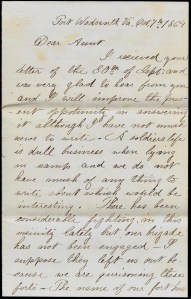 Fort Wadsworth Va. Oct 7th 1864
Dear Aunt
I received your
letter of the 30th of Sept. and
was very glad to hear from you
and I will improve the pres-
ent opportunity in answering
it although I have not much
news to write. A Soldiers life
is dull business when lying
in camp and we do not
have much of any thing to
write about which would be
interesting. There has been
considerable fighting in this
vicinity lately but our brigade
has not been engaged - I
suppose they left us out be-
cause we are garrisoning these
forts - The name of our fort